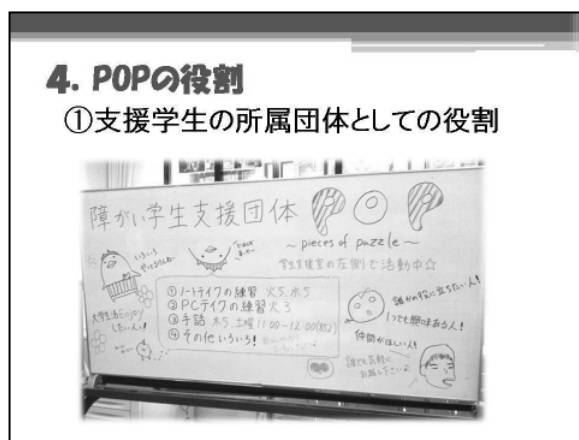 4. POPの役割
①支援学生の所属団体としての役割
障がい学生支援団体 POP
～pieces of puzzle～
学生支援室の左側で活動中☆
いろいろ
やってるりん♪
①ノートテイクの練習 火5.水5
②PCテイクの練習 火3
③手話 木5.土曜11:00~12:00
④その他いろいろ!
大学生活Enjoy
したい人!
誰かの役に立ちたい人!
1つでも興味ある人!
仲間がほしい人!
誰でも気軽に
お越し下さい♪